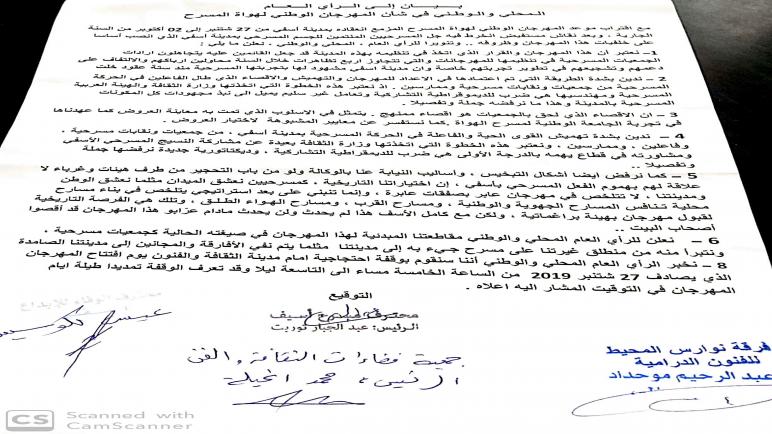 بيـــان إلـــى الـــرأي العــام
المحلي والوطني في شأن المهرجان الوطني لهواة المسرح
مع اقتراب موعد المهرجان الوطني لهواة المسرح المزمع انعقاده بمدينة اسفي من 27 شتنبر إلى 02 أكتوبر من السنة
الجارية ، وبعد نقاش مستفيض انخرط فيه جل المسرحيين المنتمين للجسم المسرحي بمدينة أسفي الذي انصب أساسا
على خلفيات هذا المهرجان وظروفه .. وتنويرا للرأي العام ، المحلي والوطني ، نعلن ما يلي :
1 – أن هذا المهرجان والقرار الذي اتخذ في تنظيمه بهذه المدينة قد جعل القائمين عليه يتجاهلون ارادات
الجمعيات المسرحية في تنظيمها للمهرجانات والتي تتجاوز أربع تظاهرات خلال السنة محاولين ارباكهم والالتفاف على
دعمهم وتشجيعهم في تطوير تجربتهم خاصة وأن مدينة أسفي مشهود لها بتجربتها المسرحية منذ ستة عقود خلت
2 – ندين بشدة الطريقة التي تم اعتمادها في الاعداد للمهرجان والتهميش والاقصاء الذي طال الفاعلين في الحركة
المسرحية من جمعيات ونقابات مسرحية وممارسين . اذ نعتبر هذه الخطوة التي اتخذتها وزارة الثقافة والهيئة العربية
المسرحية ومهندسيها هي ضرب للديموقراطية التشاركية وتعامل غير سليم يميل الى نبذ مجهودات كل المكونات
المسرحية بالمدينة وهذا ما نرفضه جملة وتفصيلا .
3 – ان الاقصاء الذي لحق بالجمعيات هو اقصاء ممنهج ، يتمثل في الاسلوب الذي تمت به معاينة العروض كما عهدناها
في تجربة الجامعة الوطنية لمسرح الهواة .كما نستفسر عن معايير المشبوهة لاختيار العروض .
4 – ندين بشدة تهميش القوى الحية والفاعلة في الحركة المسرحية بمدينة أسفي ، من جمعيات ونقابات مسرحية ،
وفاعلين ، وممارسين ، ونعتبر هذه الخطوة التي اتخذتها وزارة الثقافة بعيدة عن مشاركة النسيج المسرحي الأسفي
ومشاورته في قطاع يهمه بالدرجة الأولى هي ضرب للديمقراطية التشاركية ، وديكتاتورية جديدة نرفضها جملة
وتفصيلا ..
5 – كما نرفض أيضا أشكال التبخيس ، وأساليب النيابة عنا بالوكالة ولو من باب التحجير من طرف هيئات وغرباء لا
علاقة لهم بهموم الفعل المسرحي بأسفي ، إن اختياراتنا التاريخية ، كمسرحيين نعشق الميدان مثلما نعشق الوطن
ومدينتنا ، لا تتلخص في مهرجان عابر بصفقات عابرة ، وإنما تنبني على بعد استراتيجي يتلخص في بناء مسارح
محلية تنافس المسارح الجهوية والوطنية ، ومسارح القرب ، ومسارح الهواء الطلق ، وتلك هي الفرصة التاريخية
لقبول مهرجان بهيئة براغماتية ، ولكن مع كامل الأسف هذا لم يحدث ولن يحدث مادام عزابو هذا المهرجان قد أقصوا
أصحاب البيت ..
6 – نعلن للرأي العام المحلي والوطني مقاطعتنا المبدئية لهذا المهرجان في صيغته الحالية كجمعيات مسرحية .
ونتبرأ منه من منطلق غيرتنا على مسرح جيء به إلى مدينتنا مثلما يتم نفي الأفارقة والمجانين إلى مدينتنا الصامدة
8 – نخبر الرأي العام المحلي والوطني أننا سنقوم بوقفة احتجاجية أمام مدينة الثقافة والفنون يوم افتتاح المهرجان
الذي يصادف 27 شتنبر 2019 من الساعة الخامسة مساء الى التاسعة ليلا وقد تعرف الوقفة تمديدا طيلة أيام
المهرجان في التوقيت المشار اليه اعلاه .
التوقيع
الرئيس: عبد الجبار توربت
جمعية فضاءات الثقافة والفن
الرئيس: محمد
فرقة نوارس المحيط
للفنون الدرامية
عبد الرحيم موحداد
CS Scanned with
CamScanner